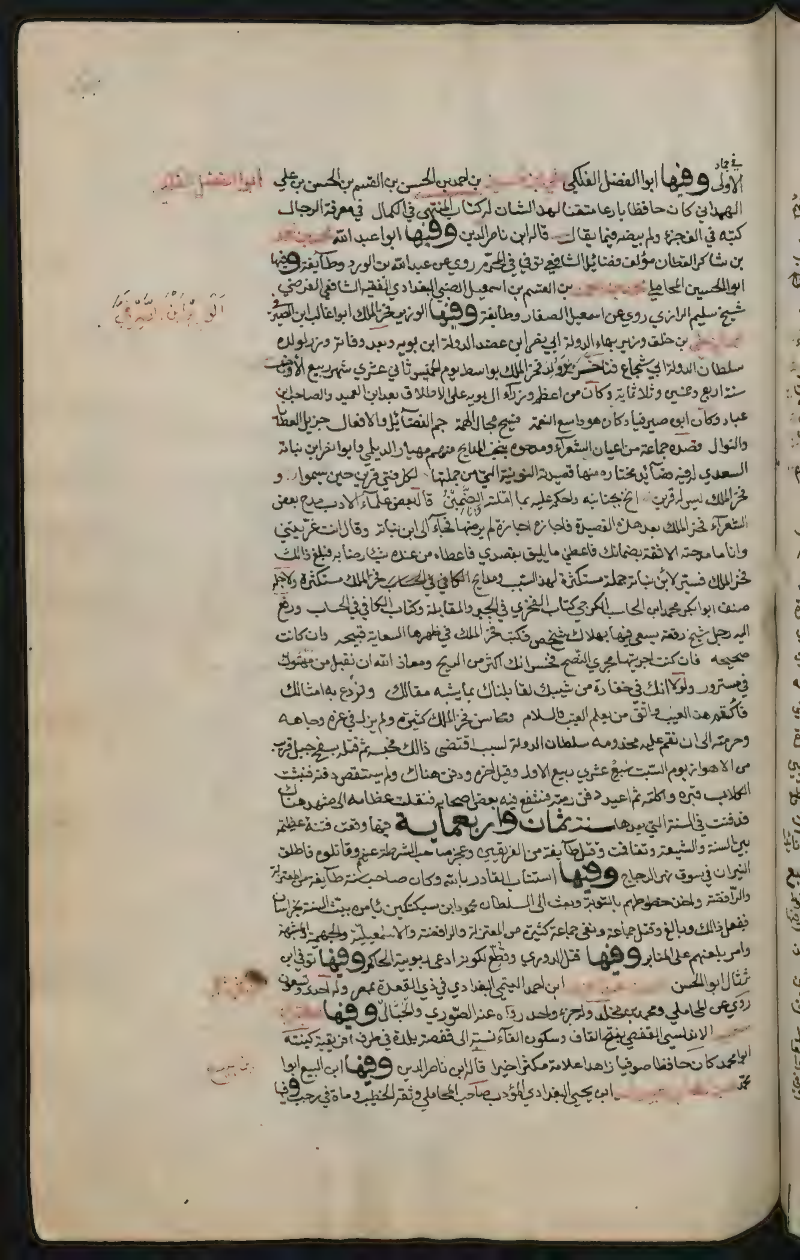 في جماد
الاولى وفيها ابوا الفضل الفلكي علي بن الحسين بن احمد بن الحسن بن القسم بن الحسن بن علي
الهمداني كان حافظا بارعا متقنا لهذا الشان له كتاب المنتهى في الكمال في معرفة الرجال
كتبه في الف جزء ولم يبيضه فيما يقال قاله ابن ناصر الدين وفيها ابوا عبد الله
بن شاكر القطان مؤلف فضائل الشافعي توفي في المحرم روى عن عبد الله بن الورد وطايفة وفيها
ابوا الحسين المحاملي محمد بن احمد بن القسم بن اسمعيل الضبي البغدادي الفقيه الشافعي الفرضي
شيخ سليم الرازي روى عن اسمعيل الصفار وطايفة وفيها الوزير فخر الملك ابوا غالب ابن الصيرفي
محمد بن علي بن خلف وزير بهاء الدولة ابي نصر ابن عضد الدولة ابن بويه وبعد وفاته وزر لولده
سلطان الدولة ابي شجاع فناخسرو ولد فخر الملك بواسط يوم الخميس ثاني عشري شهر ربيع الاخر
سنة اربع وخمسين وثلاثماية وكان من اعظم وزراء ال بويه على الاطلاق بعد ابن العميد والصاحب ابن
عباد وكان ابوه صيرفيا وكان هو واسع النعمة فسيح مجال الهمة جم الفضائل والافعال جزيل العطايا
والنوال قصده جماعة من اعيان الشعراء ومدحوه بنخب المدايح منهم مهيار الديلمي وابوا نصر ابن نباتة
السعدي له فيه قصائد مختارة منها قصيدته النونية التي من جملتها لكل فتى قرين حين يسموا و
فخر الملك ليس له قرين انخ بجنابه واحكم عليه بما املته الضمين قال بعض علماء الادب مدح بعض
الشعراء فخر الملك بعد هذه القصيدة فاجازه اجازة لم يرضها فجاء الى ابن نباتة وقال انت غريتني
وانا ما مدحته الا ثقة بضمانك فاعطني ما يليق بقصدي فاعطاه من عنده شيا رضا به فبلغ ذالك
فخر الملك فسير لابن نباتة جملة مستكثرة لهذا السبب ومدايح فخر الملك مستكثرة ولاجله
صنف ابوا بكر محمد ابن الحاسب الكرخي كتاب الفخري في الجبر والمقابلة وكتاب الكافي في الحساب ورفع
اليه رجل شيخ رقعة يسعى فيها بهلاك شخص فكتب فخر الملك في ظهرها السعاية قبيحة وان كانت
صحيحة فان كنت اجريتها مجرى النصح فخسرانك اكثر من الربح ومعاذ الله ان نقبل من مهتوك
في مستور ولولا انك في خفارة من شيبك لقابلناك بما يشبه مقالك وتردع به امثالك
فاكتم هذا العيب واتق من يعلم الغيب والسلام ومحاسن فخر الملك كثيرة ولم يزل في عزه وجاهه
وحرمته الى ان نقم عليه مخدومه سلطان الدولة لسبب اقتضى ذالك فحبسه ثم قتله بسفح جبل قريب
من الاهواز يوم السبت سبع عشري ربيع الاول وقيل اخره ودفن هناك ولم يستقص دفنه فنبشت
الكلاب قبره واكلته ثم اعيد دفن رمته فشفع فيه بعض اصحابه فنقلت عظامه الى مشهد هناك
فدفنت في السنة التي بعدها سنة ثمان واربعماية فيها وقعت فتنة عظيمة
بين السنة والشيعة وتفاقمت وقتل طايفة من الفريقين وعجز صاحب الشرطة عنهم وقاتلوه فاطلق
النيران في سوق نهر الدجاج وفيها استتاب القادر بالله وكان صاحب سنة طايفة من المعتزلة
والرافضة واخذ خطوطهم بالتوبة وبعث الى السلطان محمود ابن سبكتكين يامره ببث السنة بخراسان
ففعل ذالك وبالغ وقتل جماعة ونفى جماعة كثيرة من المعتزلة والرافضة والاسمعيلية والجهمية والمشبهة
وامر بلعنهم على المنابر وفيها قتل الدروزي وقطع لكونه ادعى ربوبية الحاكم وفيها توفي ابن
ثرثال ابوا الحسن ابن احمد التيمي البغدادي في ذي القعدة بمصر وله احدى وتسعون
روى عن المحاملي ومحمد بن مخلد وله جزء واحد رواه عنه الصوري والحبال وفيها
الاندلسي القفصي بفتح القاف وسكون الفاء نسبة الى قفصة بلدة في طرف افريقية كنيته
ابوا محمد كان حافظا صوفيا زاهدا علامة مكثرا خيرا قاله ابن ناصر الدين وفيها ابن البيع ابوا
محمد ابن يحيى البغدادي المؤدب صاحب المحاملي وثقه الخطيب ومات في رجب وفيها
ابوا الفضل الفلكي